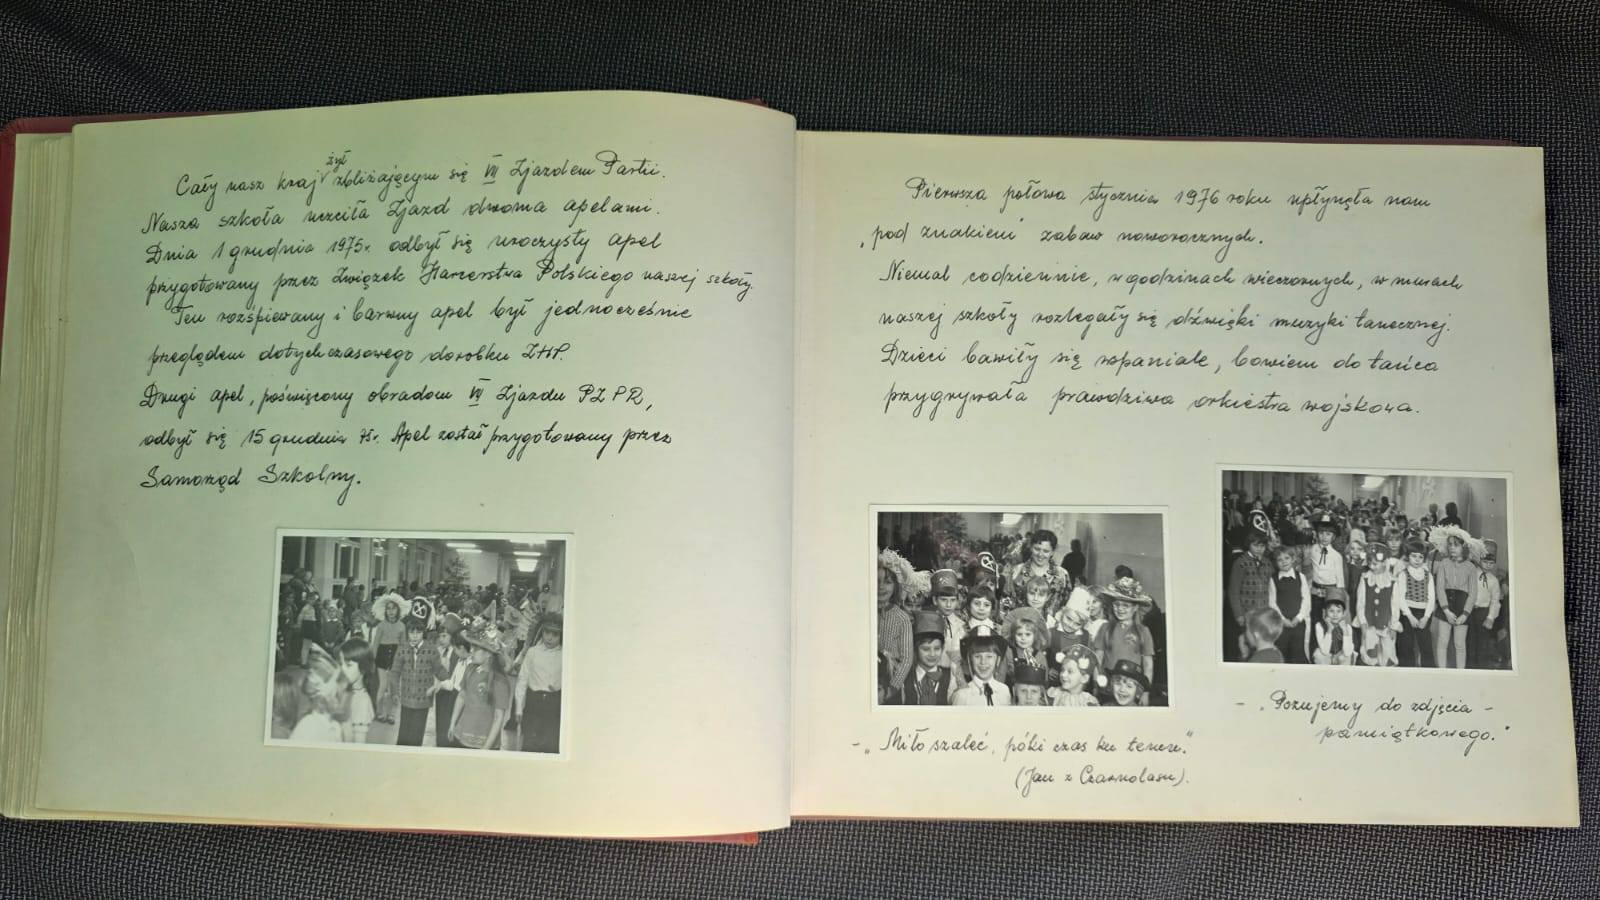 Cały nasz kraj żył zbliżającym się VII Zjazdem Partii.
Nasza szkoła uczciła Zjazd dwoma apelami.
Dnia 1 grudnia 1975r. odbył się uroczysty apel
przygotowany przez Związek Harcerstwa Polskiego naszej szkoły.
Ten rozśpiewany i barwny apel był jednocześnie
przeglądem dotychczasowego dorobku ZHP.
Drugi apel, poświęcony obradom VII Zjazdu PZPR,
odbył się 15 grudnia 75r. Apel został przygotowany przez
Samorząd Szkolny.
Pierwsza połowa stycznia 1976 roku upłynęła nam
"pod znakiem" zabaw noworocznych.
Niemal codziennie, w godzinach wieczornych, w murach
naszej szkoły rozlegały się dźwięki muzyki tanecznej.
Dzieci bawiły się wspaniale, bowiem do tańca
przygrywała prawdziwa orkiestra wojskowa.
- „Miło szaleć, póki czas ku temu."
(Jan z Czarnolasu).
- „Pozujemy do zdjęcia -
pamiątkowego."